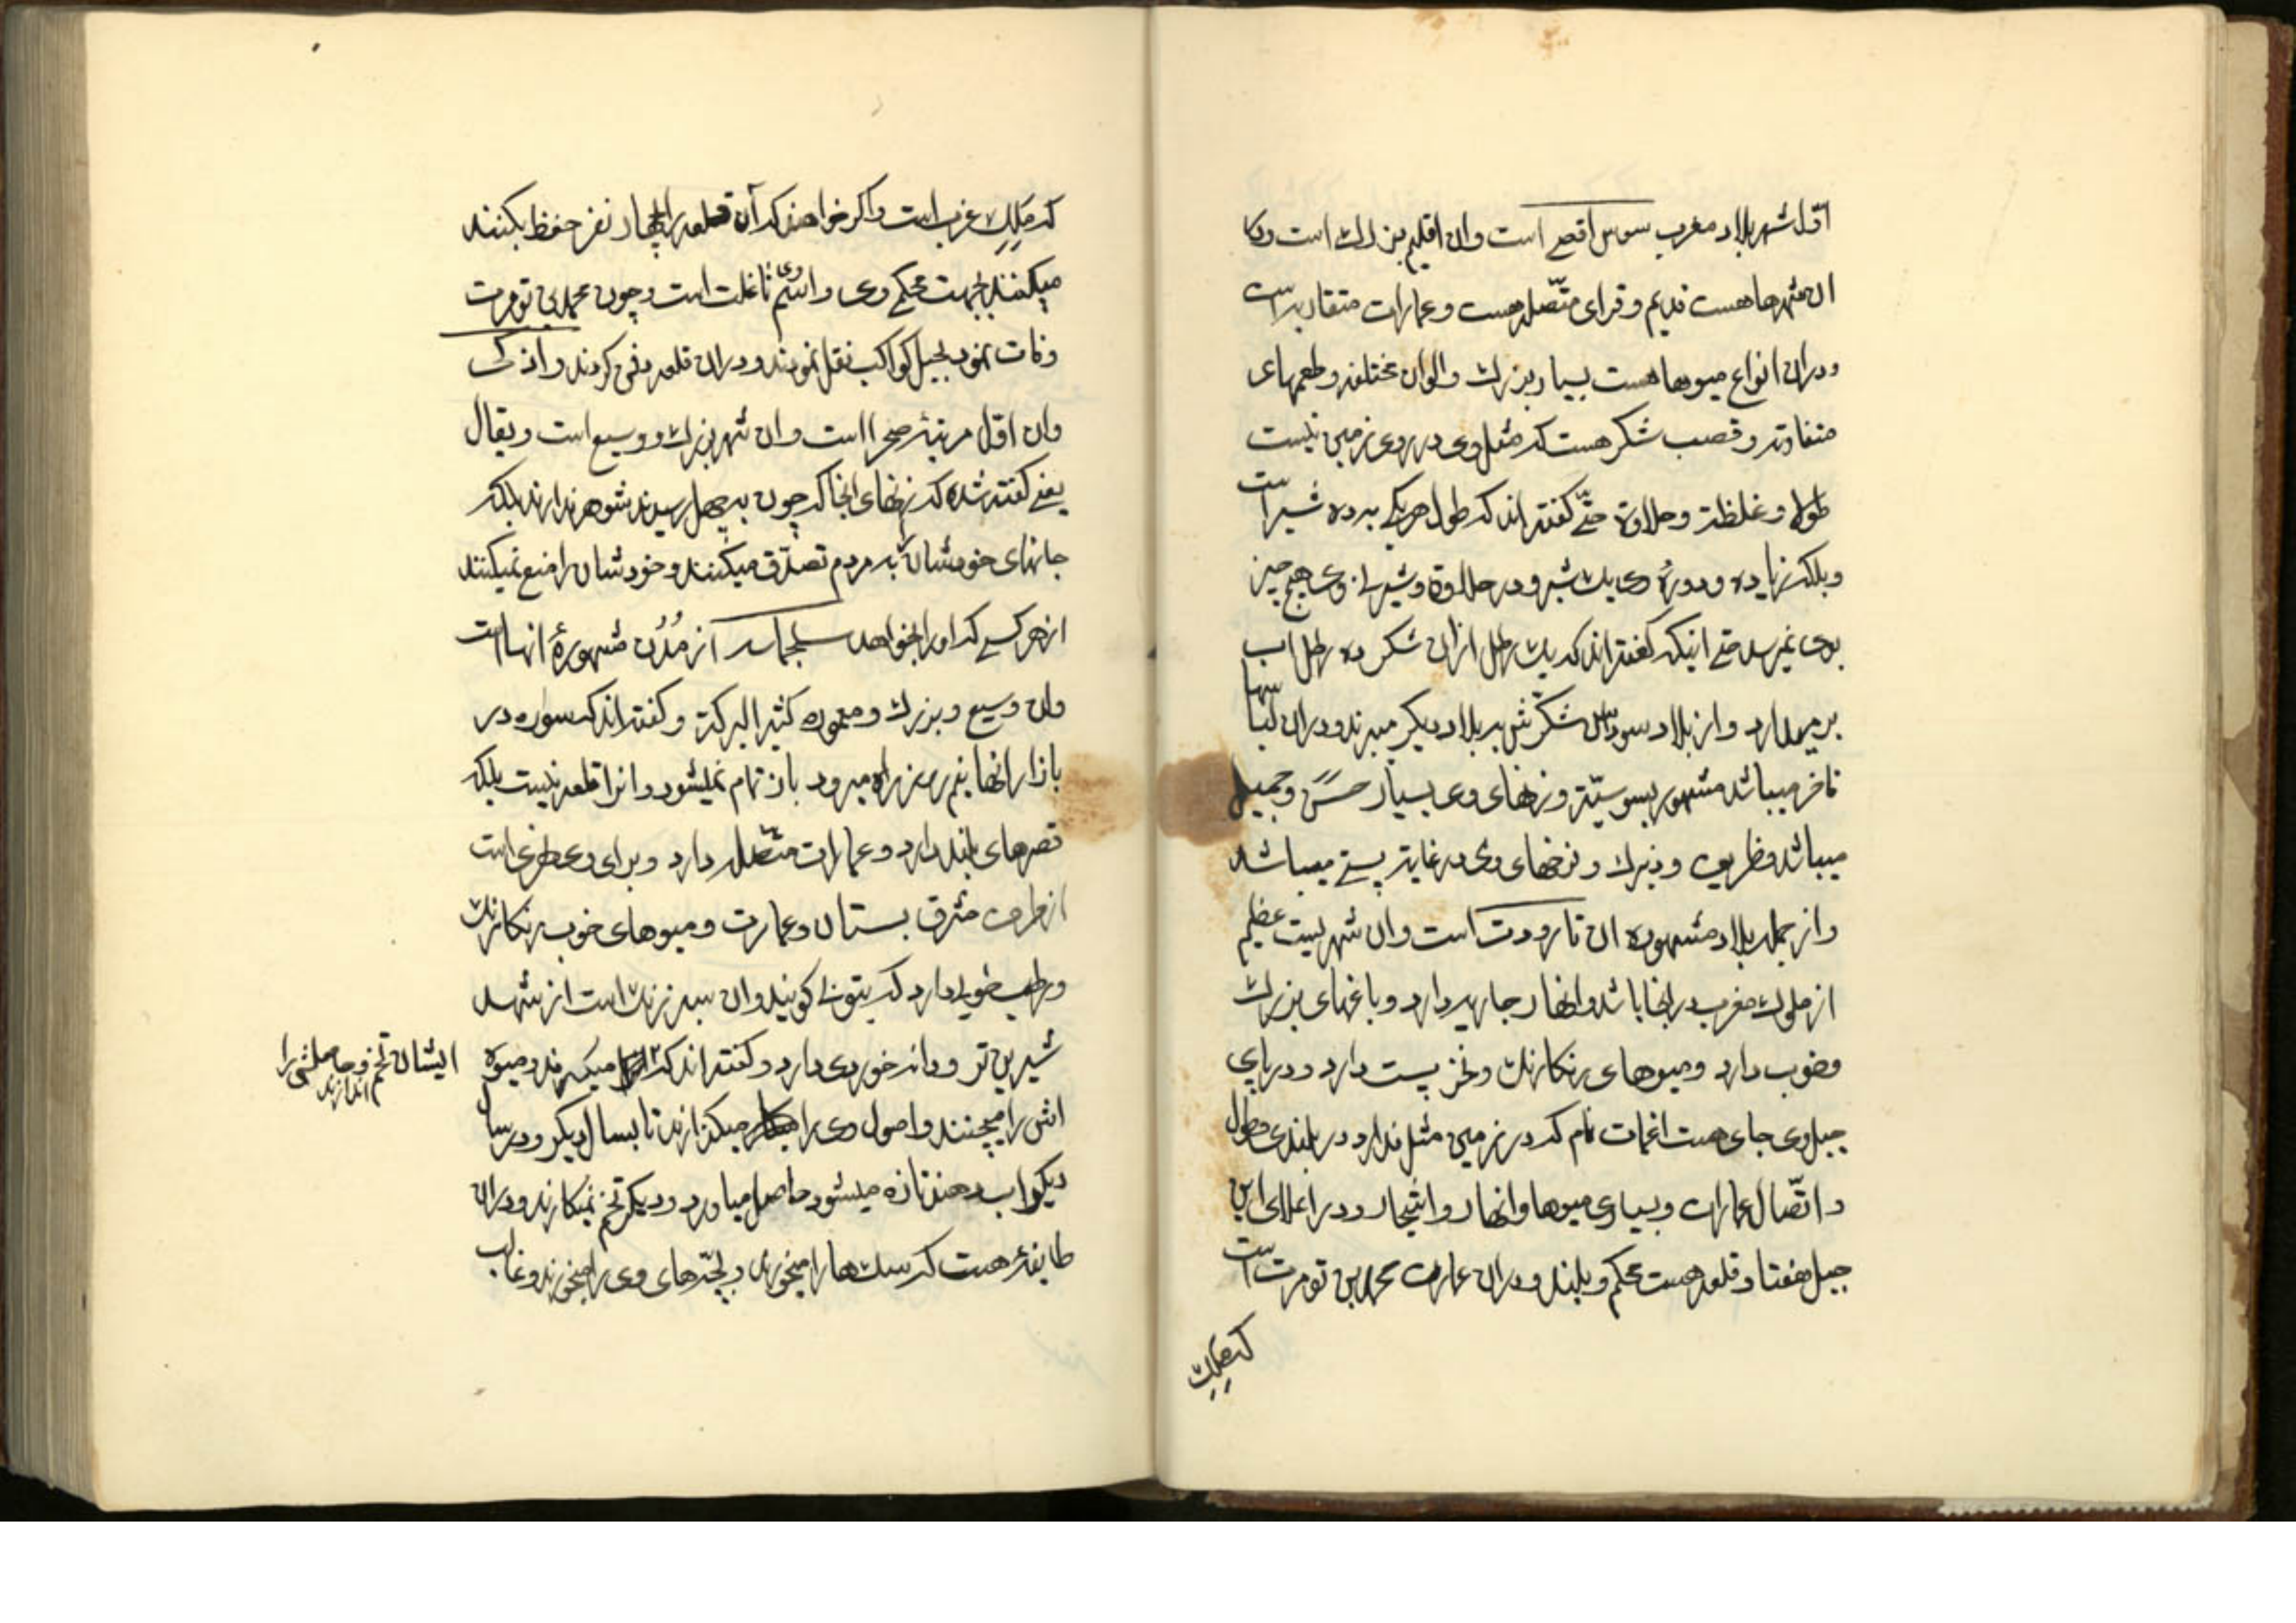 اوّل شهر بلاد مغرب سوس اقصی است وان اقلیم بزرك است و
ان شهرها هست قدیم و قرای متّصله هست و عمارات متقاربه است
ودران انواع میوها هست بسیار بزرك والوان مختلفه وطعمهای
متفاوته و قصب شکر هست که مثل وی در روی زمین نیست
طولا و غلظة و حلاوة حتّی گفته اند که طول هریکی به ده شبر است
وبلکه زیاده ودورۀ وی یك شبر و در حلاوة وشیرینی وی هیچ چیز
بوی نمیرسد حتی اینکه گفته اند که یك رطل ازان شکر ده رطل اب
بر میدارد و از بلاد سودان شکرش به بلاد دیکر میبرند ودران لباسها
فاخر میباشد مشهور بسوسیّة و زنهای وی بسیار حسن و جمیل
میباشد وظریف و زیرك و نرخهای وی در غایة پستی میباشد
واز جمله بلاد مشهوره ان تارودت است وان شهریست عظیم
از ملوك مغرب در انجا باشد وانهار جاریه دارد و باغهای بزرك
وخوب دارد ومیوهای رنکارنك ونرخ پست دارد ودر پای
جبل وی جای هست اغمات نام که در زمین مثل ندارد در بلندی وطول
واتّصال عمارات وبسیاری میوها وانهار واشجار ودر اعلای این
جبل هفتاد قلعه هست محکم وبلند ودران عمارت محمد بن تومرت است
که ملك
که ملك غرب است واکر خواهند که آن قلعه را چهار نفر حفظ بکنند
میکنند بجهت محکمی وی واسم وی تاغلت است و چون محمد بن تومرت
وفات نمود بجبل کواکب نقل نمودند ودران قلعه دفن کردند واذکی
وان اوّل مرتبۀ صحرا است وان شهر بزرك ووسیع است ویقال
یعنی کفته شده که زنهای انجا که چون به چهل رسیدند شوهر ندارند بلکه
جانهای خودشان را به مردم تصدّق میکنند و خودشان را منع نمیکنند
از هر کسی که او را بخواهد سلجماسه از مُدُن مشهورۀ انها است
وان وسیع وبزرك ومعموره کثیر البرکة و کفته اند که سوره در
بازار انها نیم روز راه میرود باز تمام نمیشود وانرا قلعه نیست بلکه
قصرهای بلند دارد و عمارات متّصله دارد وبرای وی نهری است
از طرف مشرق بستان وعمارت ومیوهای خوب رنکارنك
ورطب خوبی دارد که بتونی کویند وان سبز رنك است از شهد
شیرین تر ودانه خوردی دارد وکفته اند که میکارند ومیوه
ایشان تخم وحاصلش را اندازند
اش را میچینند واصول وی را میکذارند تا بسال دیکر ودر سال
دیکر اب دهند تازه میشود حاصل میاورد ودیکر تخم نمیکارند ودران
طایفۀ هست که سك ها را میخورند وبچّه های وی را میخورند وغالب